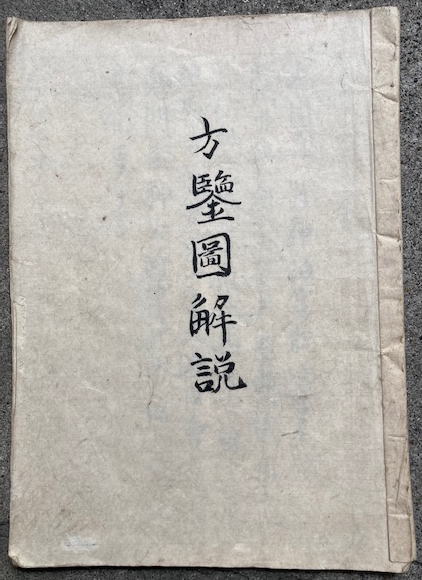 方鑒圖解説